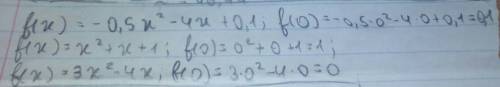 f(x) = -0,5x² - 4x + 0,1; f(0) = -0,5·0² - 4·0 + 0,1 = 0,1
f(x) = x² + x + 1; f(0) = 0² + 0 + 1 = 1;
f(x) = 3x² - 4x, f(0) = 3·0² - 4·0 = 0